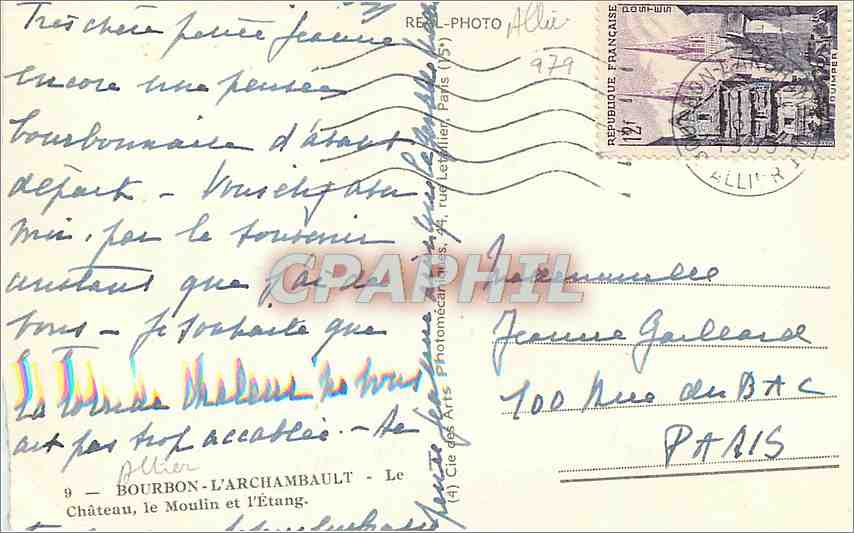 Très chère petite Jeanne
encore une pensée
bourbonnaise d'avant
départ - Vous
par le souvenir
constant que j'ai de
vous - Je souhaite que
la torride chaleur ne vous
ait pas trop accablée. -
Allier
9 — BOURBON-L'ARCHAMBAULT - Le
Château, le Moulin et l'Étang.
REAL-PHOTO
Allier
979
(4) Cie des Arts Photomécaniques, 44, rue Letellier, Paris (15e)
petite Jeanne
RÉPUBLIQUE FRANÇAISE
POSTES
12f
QUIMPER
ALLIER
CPARPHIL
Mademoiselle
Jeanne Gaillard
100 Rue du BAC
PARIS